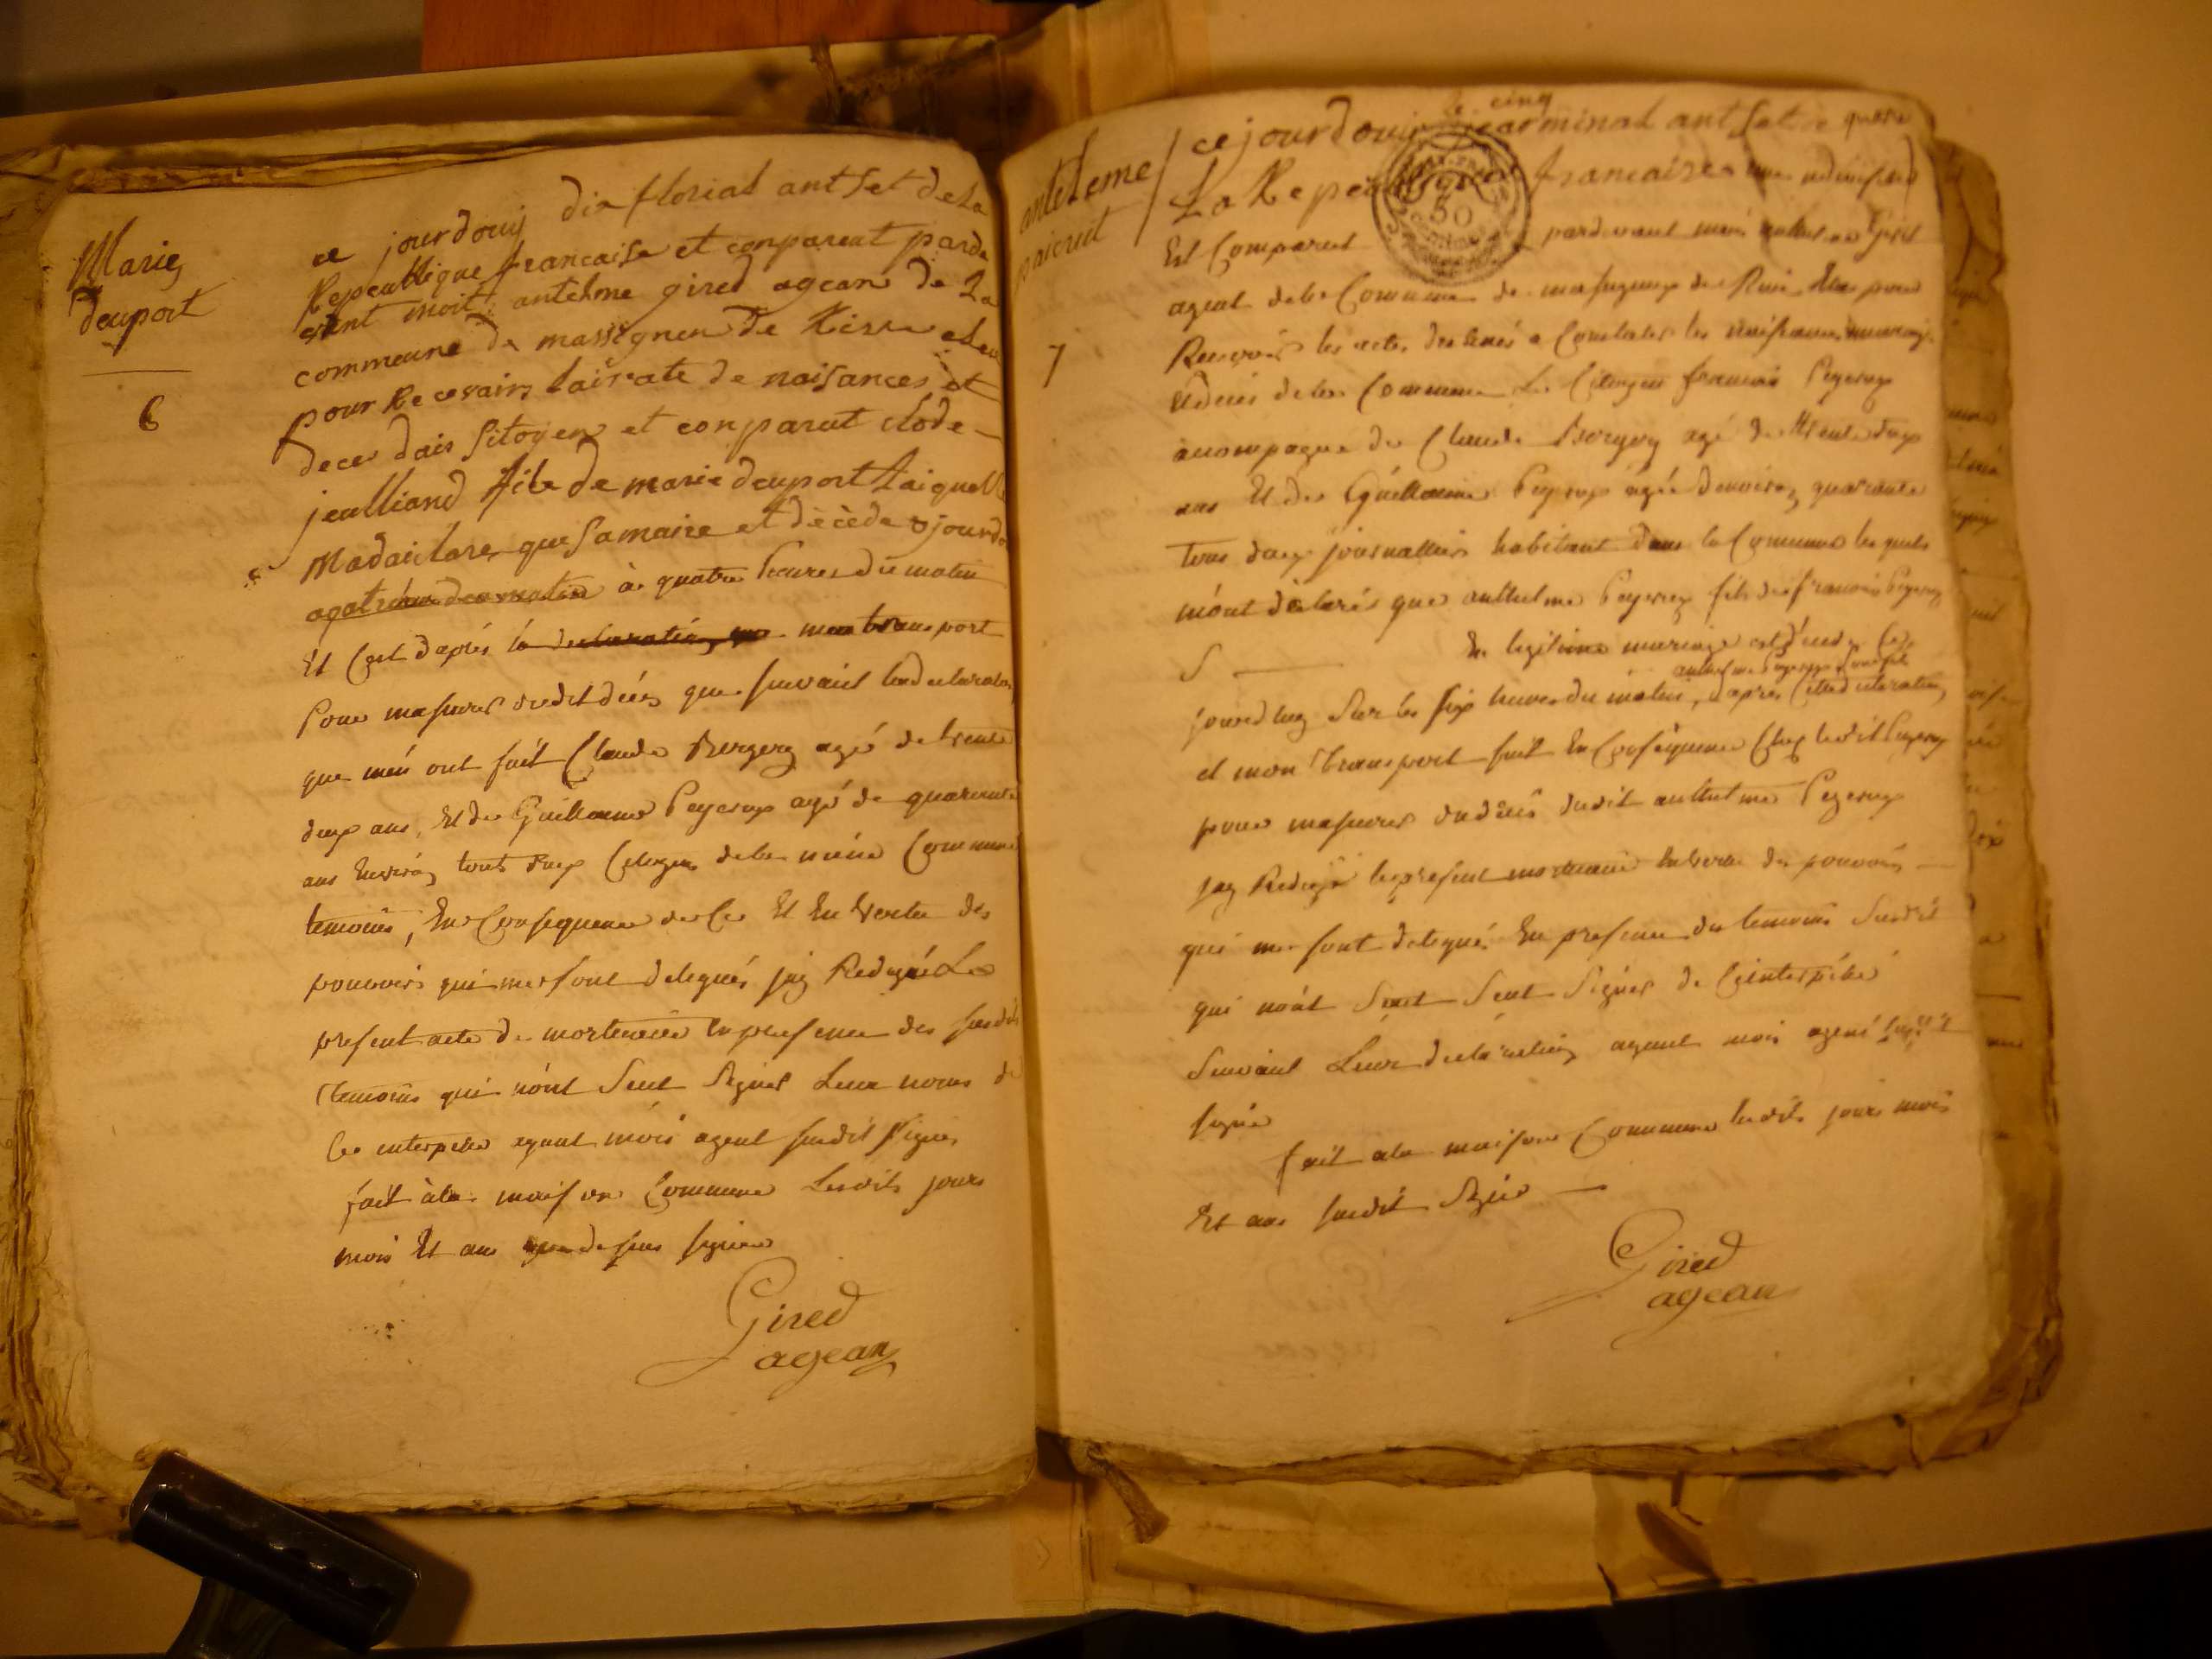 Marie
deuport
6
ce jourdouij dix florial ant set de la
Repeublique francaise et conpareut parde
vent moit antelme gired agean de La
commeune de massignieu de Rives eleu
pour Recevoir lais ate de naisances et
deces dais sitoyen et conparut clode
jeulliand file de marie deuport laiquelle
Madaiclare que sa maire et décède ojourdo
agat reheure deu matin à quatre heures du matin
Et C'est d'aprés la declaration mon transport
Pour m'assurer dudit décés que suivant la declaration
que m'en ont fait Claude Bergery agé de trente
deux ans, Et de Guillaume Peyerux agé de quarante
ans Environ tous deux Citoyens de la méme Commune
temoins, En Consequence de Ce Et En Vertu des
pouvoirs qui me sont delegués j'ay Redigé Le
present acte de mortuaire En presence des susdits
temoins qui n'ont Seut Signer Leur noms de
Ce interpelé ayant moi agent susdit Signé
fait à la maison Commune Lesdits jours
mois Et an que dessus signé
Gired
agean
antheleme
paierut
7
le cinq
ce jourdouij jearminal ant set
La Repeublique francaise une indivisible
Est Comparut pardevant moi Gired
agent de la Commune de massigneux de Rives Elus pour
Recevoir les actes destinés a Constater les naissances mariages
Et décés de la Commune Le Citoyen francois Peyerux
acompagné de Claude Bergery agé de trente deux
ans Et de Guillaume Peyerux agée d'environ quarante
tous deux journalliers habitant dans la Commune lesquels
m'ont déclarés que anthelme Peyerux fils de francois Peyerux
S En legitime mariage est décedé Ce
anthelme Peyerux son fils
jourdhuy Sur les six heures du matin, d'apres Cette declaration,
et mon transport fait En Conséquence Chez ledit Peyerux
pour m'assurer du décés dudit anthelme Peyerux
j'ay Redigé le present mortuaire En Vertu des pouvoirs
qui me sont delegués En presence des temoins Susdit
qui n'ont Seut Signer de Ce interpélés
Suivant Leur declaration ayant moi agent susdit
signé
fait a la maison Commune lesdits jours mois
Et an susdit Signé
Gired
agean